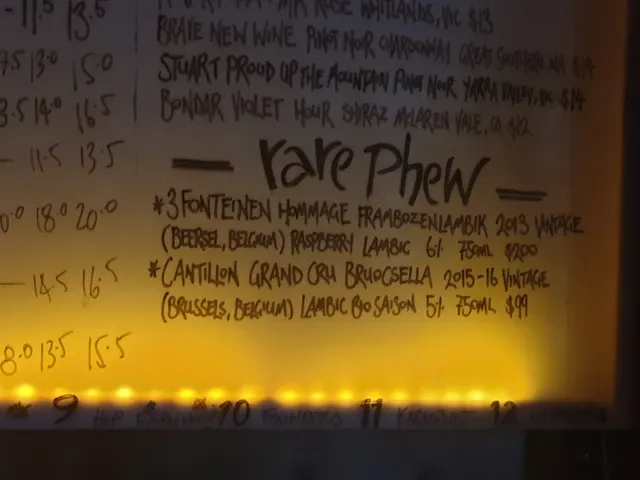 -11.5 13.5
ROSE WHITLANDS, VIC $13
BRAVE NEW WINE PINOT NOIR CHARDONNAY GREAT SOUTHERN, WA $14
7.5 13.0 15.0
STUART PROUD UP THE MOUNTAIN PINOT NOIR YARRA VALLEY, VIC $14
3.5 14.0 16.5
BONDAR VIOLET HOUR SHIRAZ MCLAREN VALE, SA $12
— 11.5 13.5
— rare Phew —
0.0 18.0 20.0
*3 FONTEINEN HOMMAGE FRAMBOZENLAMBIK 2013 VINTAGE
(BEERSEL, BELGIUM) RASPBERRY LAMBIC 6% 750ML $200
— 14.5 16.5
*CANTILLON GRAND CRU BRUOCSELLA 2015-16 VINTAGE
(BRUSSELS, BELGIUM) LAMBIC BIO SAISON 5% 750ML $99
8.0 13.5 15.5
9 HOP 10 11 12